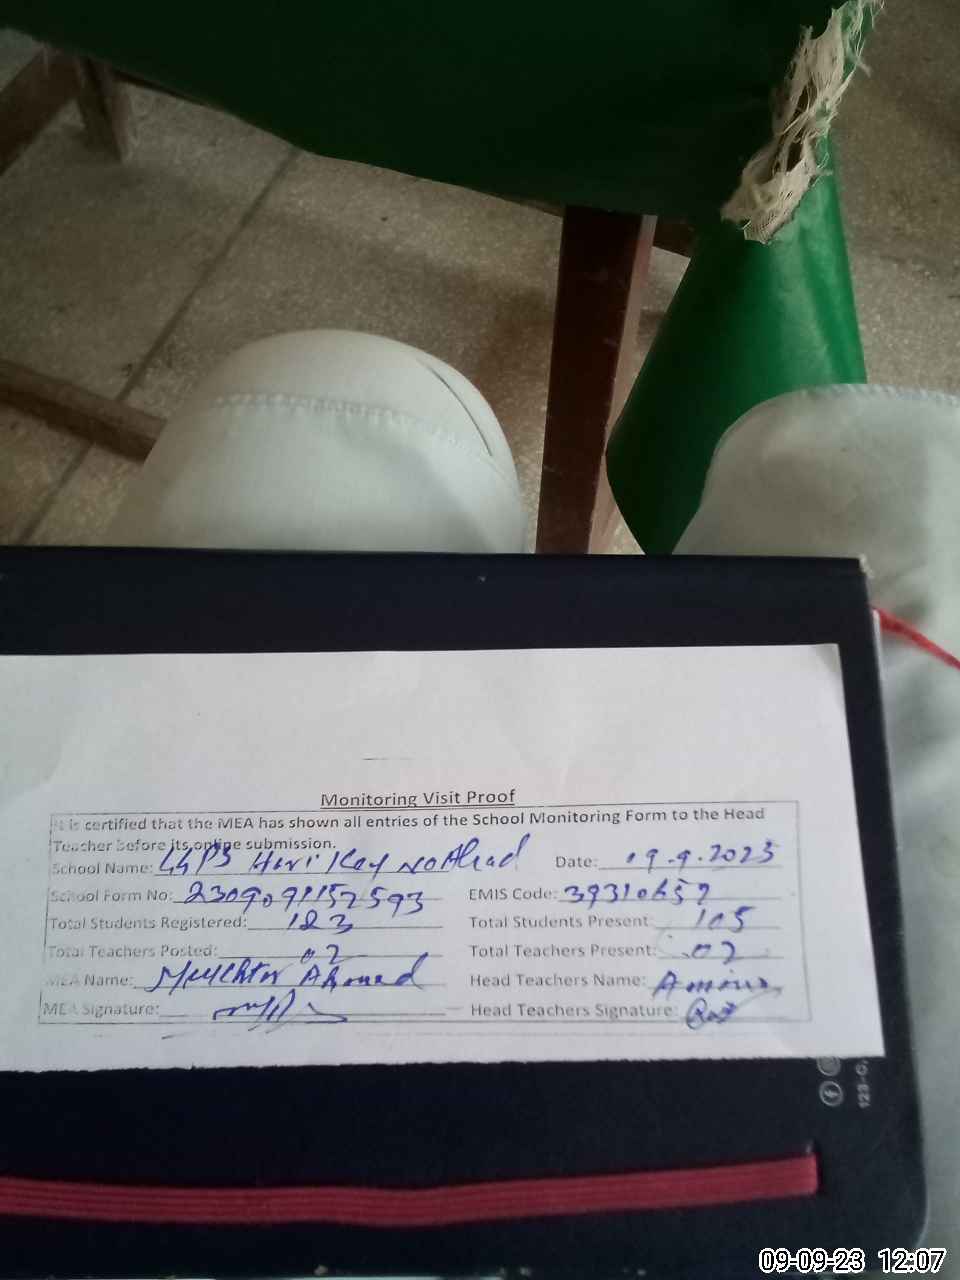 Monitoring Visit Proof
It is certified that the MEA has shown all entries of the School Monitoring Form to the Head
Teacher before its online submission.
School Name: GGPS Hari Key Date: 09.9.2023
School Form No: 2309091152593 EMIS Code: 39310657
Total Students Registered: 123 Total Students Present: 105
Total Teachers Posted: 02 Total Teachers Present: 02
MEA Name: Mukhtar Ahmed Head Teachers Name: Amina
MEA Signature: Head Teachers Signature:
09-09-23 12:07